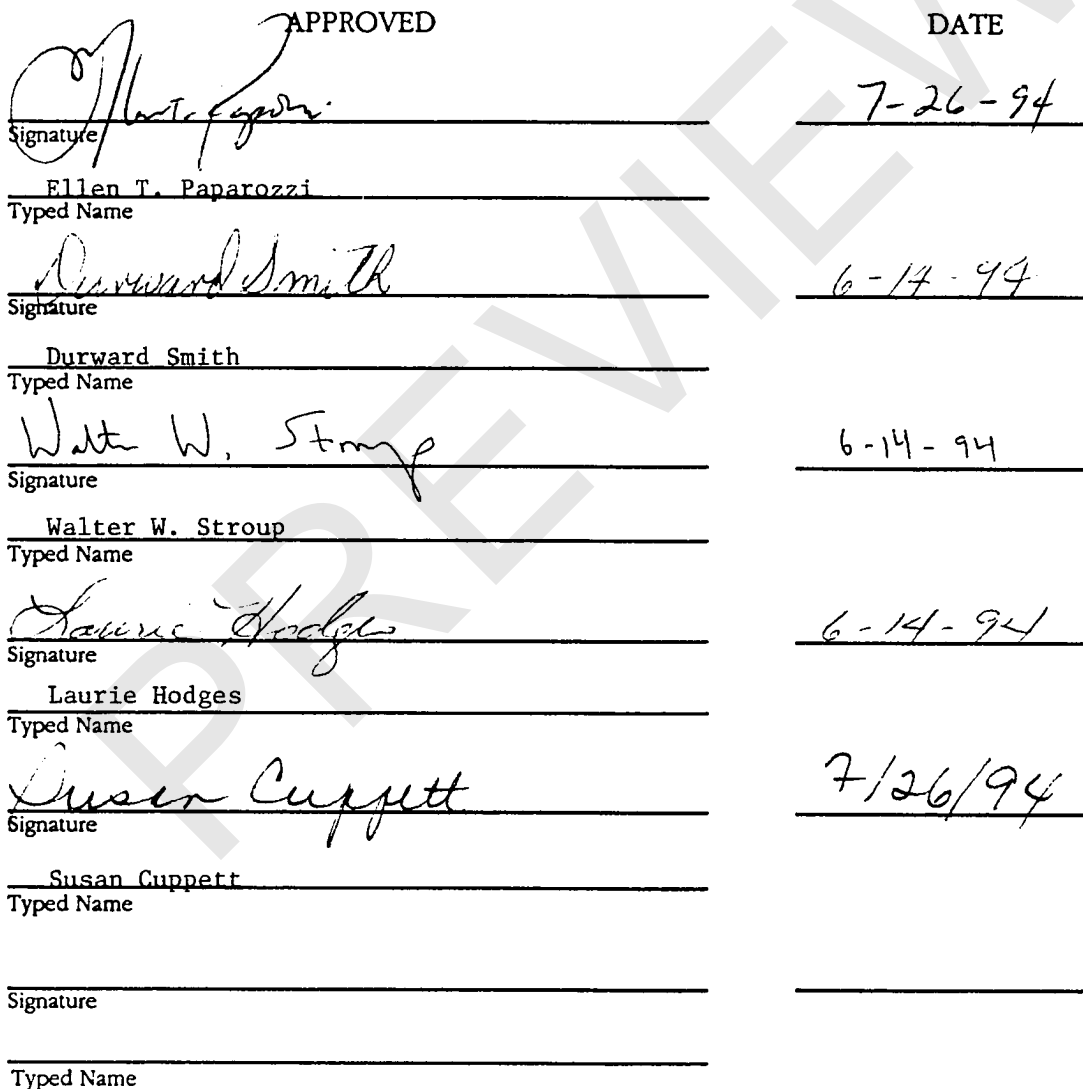 APPROVED DATE
7-26-94
Signature
Ellen T. Paparozzi
Typed Name
Durward Smith 6-14-94
Signature
Durward Smith
Typed Name
Walter W. Stroup 6-14-94
Signature
Walter W. Stroup
Typed Name
Laurie Hodges 6-14-94
Signature
Laurie Hodges
Typed Name
Susan Cuppett 7/26/94
Signature
Susan Cuppett
Typed Name
Signature
Typed Name
PREVIEW